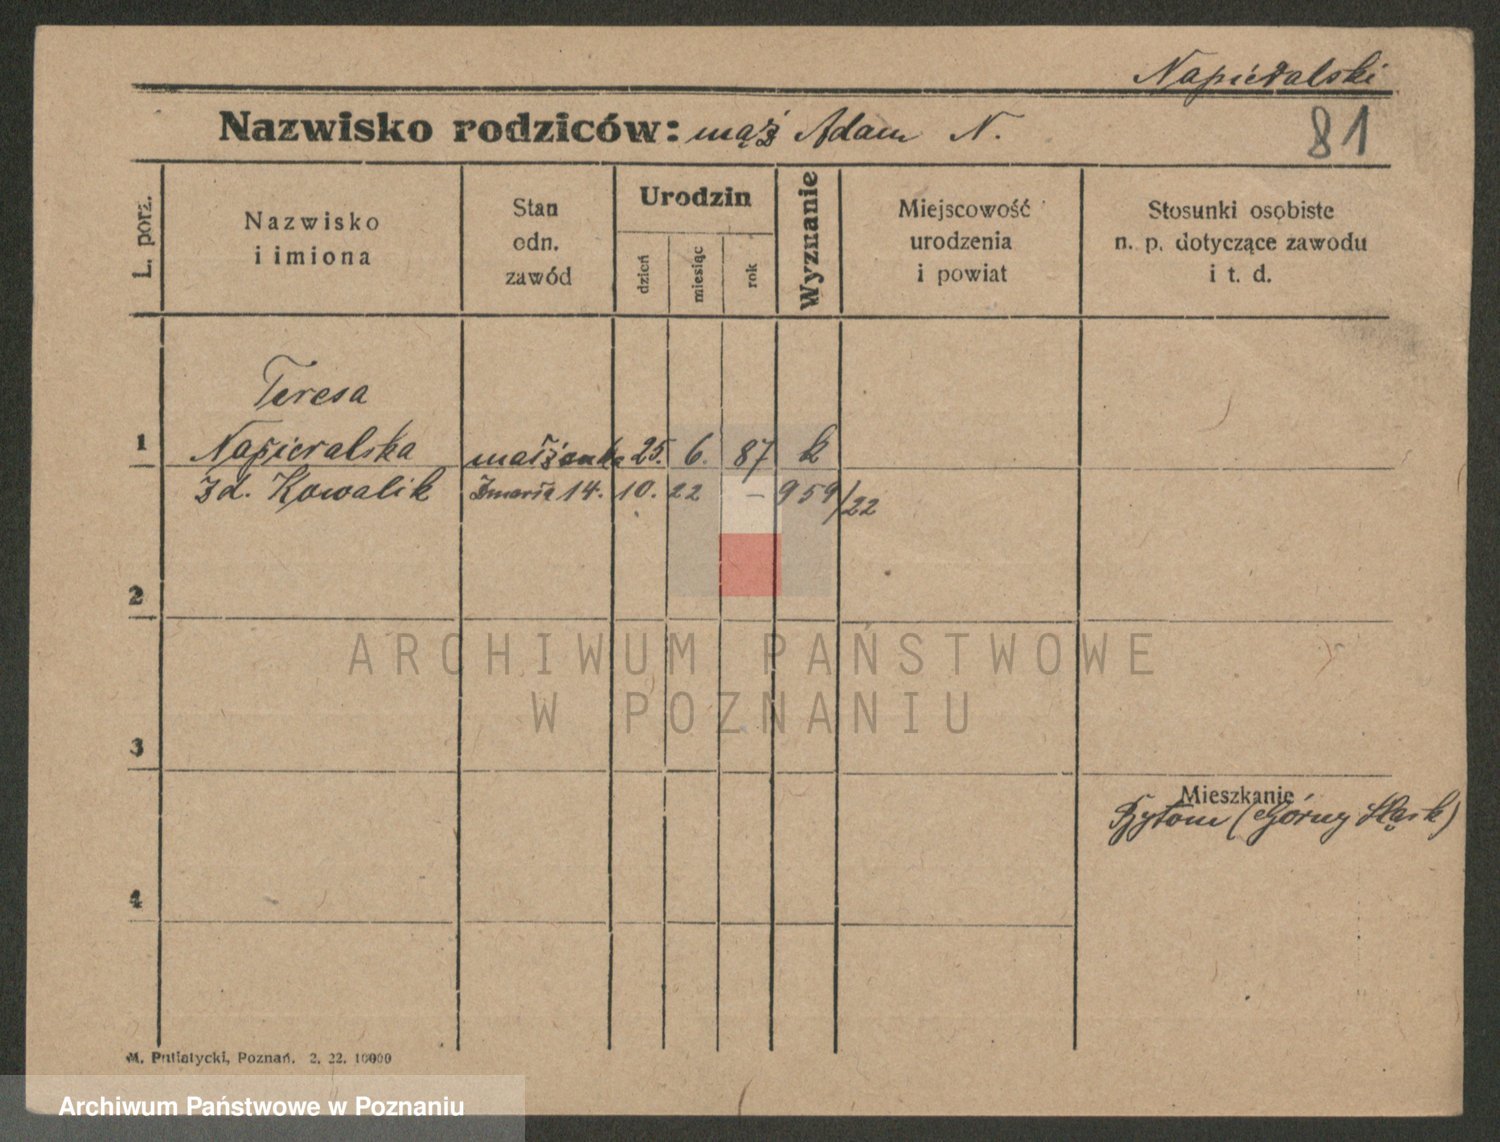 Napieralski
Nazwisko rodziców: mąż Adam N.
81
L. porz.
Nazwisko
i imiona
Stan
odn.
zawód
Urodzin
dzień
miesiąc
rok
Wyznanie
Miejscowość
urodzenia
i powiat
Stosunki osobiste
n. p. dotyczące zawodu
i t. d.
Teresa
1 Napieralska małżonka 25. 6. 87 k
zd. Kowalik zmarła 14. 10. 22 – 959/22
2
ARCHIWUM PAŃSTWOWE
W POZNANIU
3
Mieszkanie
Bytom (Górny Śląsk)
4
M. Putiatycki, Poznań. 2. 22. 10000
Archiwum Państwowe w Poznaniu